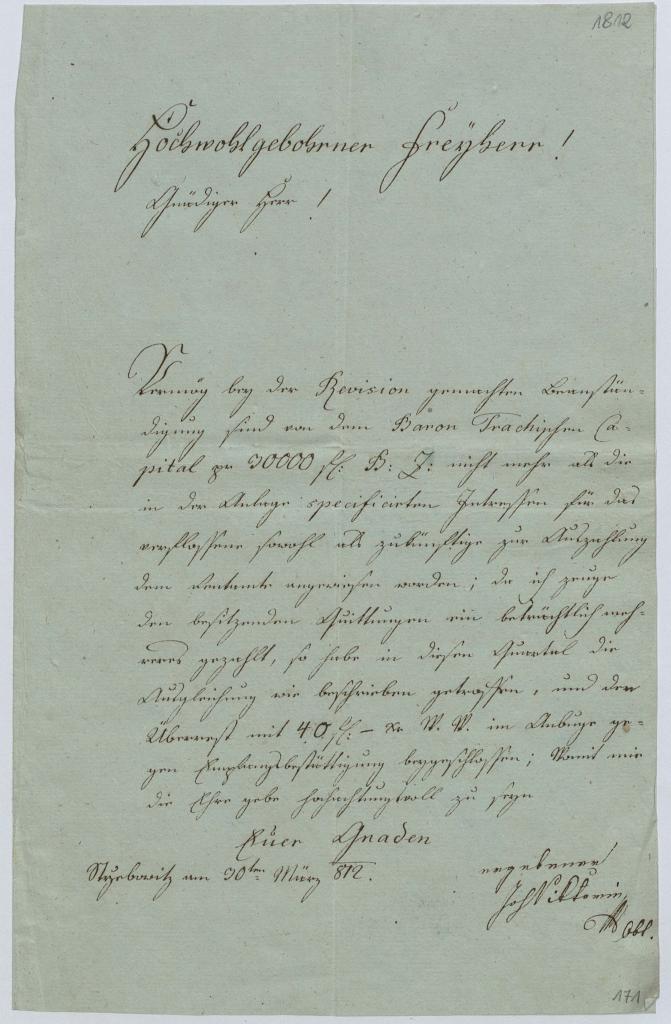 1812
Hochwohlgebohrner Freyherr!
Gnädiger Herr!
Vermög bey der Revision gemachten Beanstän-
digung sind von dem Baron Trachischen Ca-
pital pr 30000 fl: B: Z: nicht mehr als die
in der Anlage specificirten Intressen für das
verflossene sowohl als zukünftige zur Auszahlung
dem Rentamte angewiesen worden; da ich zeuge
den besitzenden Quittungen ein beträchtlich meh-
reres gezahlt, so habe in diesen Quartal die
Ausgleichung wie beschrieben getroffen, und den
Überrest mit 40 fl: – xr W. W. im Anbuge ge-
gen Empfangsbestättigung beygeschlossen; Womit mir
die Ehre gebe hochachtungsvoll zu seyn
Euer Gnaden
Strzebowitz am 30ten März 812.
ergebener
Joh Viktorin
Obl.
171